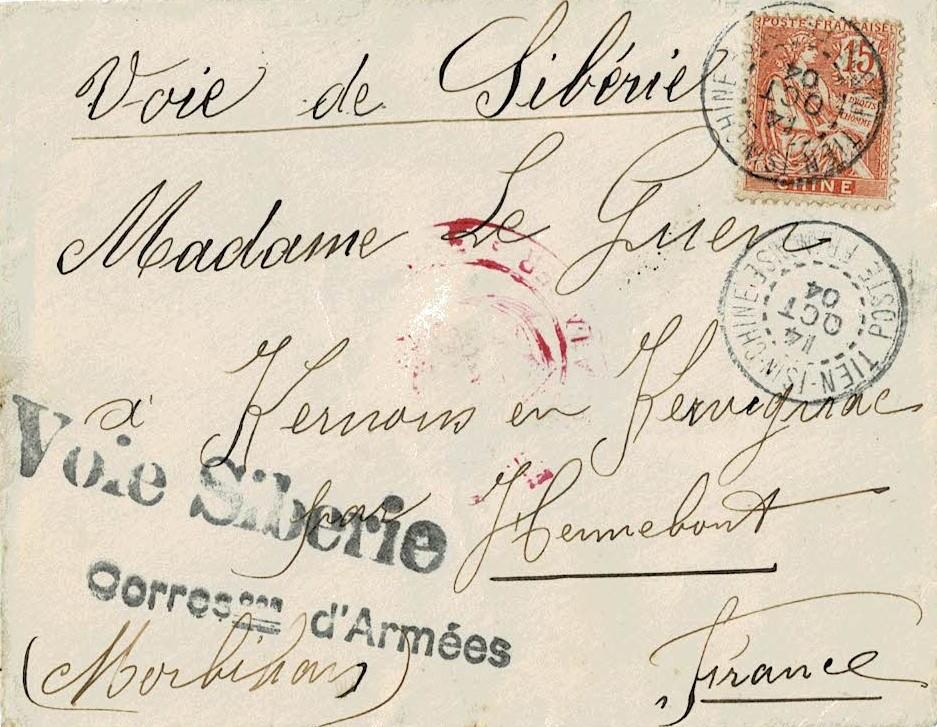 Voie de Sibérie
POSTE FRANÇAISE
15
CHINE
14
OCT
04
Madame Le Guen
TIEN-TSIN-CHINE
POSTE FRANÇAISE
14
OCT
04
à Kernous en Kervignac
Voie Siberie
par Hennebont
Corres d'Armées
(Morbihan)
France